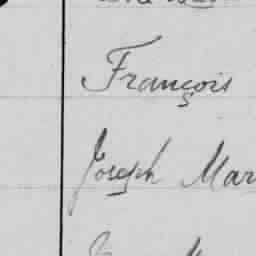 François
Joseph Mar